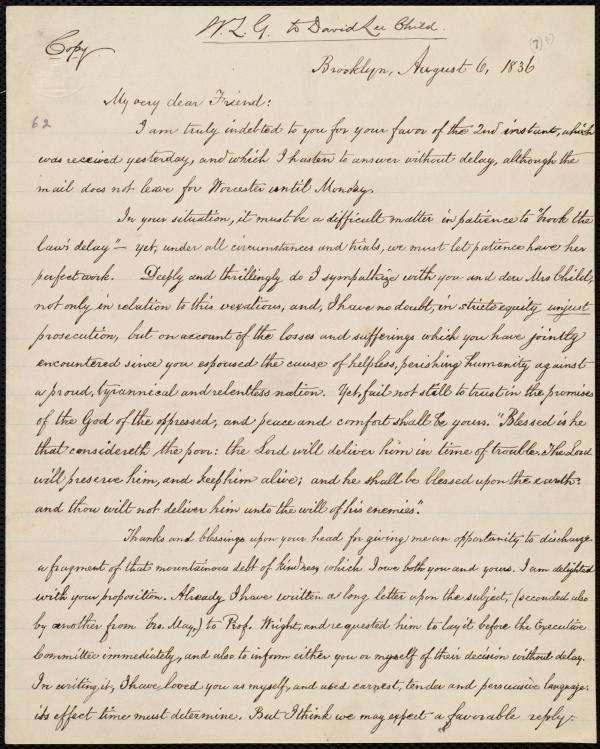 W. L. G. to David Lee Child.
Copy.
Brooklyn, August 6, 1836
My very dear Friend:
62
I am truly indebted to you for your favor of the 2nd instant, which
was received yesterday, and which I hasten to answer without delay, although the
mail does not leave for Worcester until Monday.
In your situation, it must be a difficult matter in patience to "brook the
law's delay"— yet, under all circumstances and trials, we must let patience have her
perfect work. Deeply and thrillingly do I sympathize with you and dear Mrs Child,
not only in relation to this vexatious, and, I have no doubt, in strict equity unjust
prosecution, but on account of the losses and sufferings which you have jointly
encountered since you espoused the cause of helpless, perishing humanity against
a proud, tyrannical and relentless nation. Yet, fail not still to trust in the promises
of the God of the oppressed, and peace and comfort shall be yours. "Blessed is he
that considereth the poor: the Lord will deliver him in time of trouble. The Lord
will preserve him, and keep him alive; and he shall be blessed upon the earth:
and thou wilt not deliver him unto the will of his enemies".
Thanks and blessings upon your head for giving me an opportunity to discharge
a fragment of that mountainous debt of kindness which I owe both you and yours. I am delighted
with your proposition. Already I have written a long letter upon the subject, (seconded also
by another from bro. May,) to Prof. Wright, and requested him to lay it before the Executive
Committee immediately, and also to inform either you or myself of their decision without delay.
In writing it, I have loved you as myself, and used earnest, tender and persuasive language:
its effect time must determine. But I think we may expect a favorable reply.